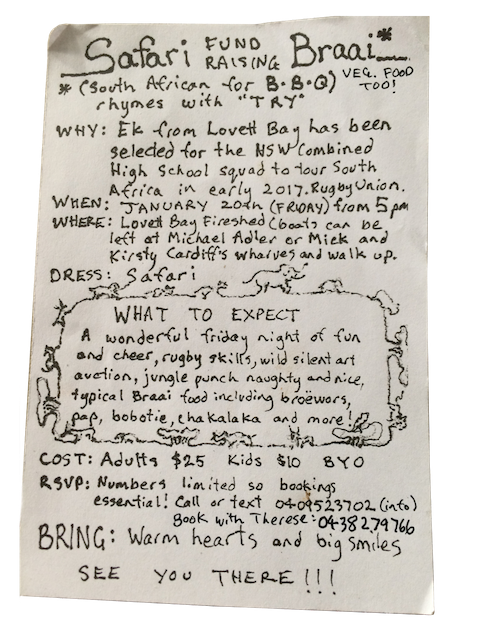 Safari FUND RAISING Braai*
* (South African for B.B.Q) VEG. FOOD TOO!
rhymes with "TRY"
WHY: Ek from Lovett Bay has been
selected for the NSW Combined
High School squad to tour South
Africa in early 2017. Rugby Union.
WHEN: JANUARY 20th (FRIDAY) from 5pm
WHERE: Lovett Bay Fireshed (boats can be
left at Michael Adler or Mick and
Kirsty Cardiff's wharves and walk up.
DRESS: Safari
WHAT TO EXPECT
A wonderful friday night of fun
and cheer, rugby skills, wild silent art
auction, jungle punch naughty and nice,
typical Braai food including broëwors,
pap, bobotie, chakalaka and more!
COST: Adults $25 Kids $10 BYO
RSVP: Numbers limited so bookings
essential! Call or text 0409523702 (info)
Book with Therese: 0438279766
BRING: Warm hearts and big smiles
SEE YOU THERE!!!